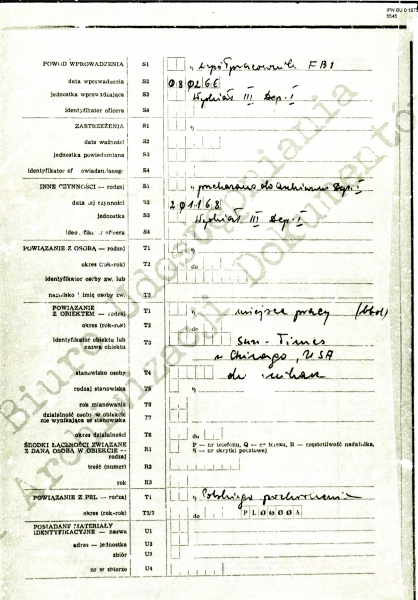 IPN BU 0 1678
5545
POWÓD WPROWADZENIA S1 „ współpracownik FBI
data wprowadzenia S2 080266
jednostka wprowadzająca S3 Wydział III Dep. I
identyfikator oficera S4
ZASTRZEŻENIA S1 „
data ważności S2
jednostka powiadomiona S3
identyfikator of owiadamianego S4
INNE CZYNNOŚCI — rodzaj S1 „ przekazano do Archiwum Dep. I
data tej czynności S2 201168
jednostka S3 Wydział III Dep. I
iden ifika or oficera S4
POWIĄZANIE Z OSOBĄ — rodzaj T1 „
okres (rok-rok) T2 do
identyfikator osoby zw. lub
nazwisko i imię osoby zw. T3
POWIĄZANIE
Z OBIEKTEM — rodzaj T1 „ miejsce pracy
okres (rok-rok) T2 do
identyfikator obiektu lub
nazwa obiektu T3 Sun-Times
w Chicago, USA
stanowisko osoby T4 dziennikarz
rodzaj stanowiska T5 „
rok mianowania T6
działalność osoby w obiekcie
nie wynikająca ze stanowiska T7
okres działalności T8 do
ŚRODKI ŁĄCZNOŚCI ZWIĄZANE
Z DANĄ OSOBĄ W OBIEKCIE —
rodzaj R1 P — nr telefonu, Q — nr telexu, R — częstotliwość nadajnika,
S — nr skrytki pocztowej
treść (numer) R2
rok R3
POWIĄZANIE Z PRL — rodzaj T1 „ Polskiego pochodzenia
okres (rok-rok) T2/3 do PL0000A
POSIADANE MATERIAŁY
IDENTYFIKACYJNE — nazwa U1
adres — jednostka U2
zbiór U3
nr w zbiorze U4
Biuro Udostępniania
i Archiwizacji Dokumentów